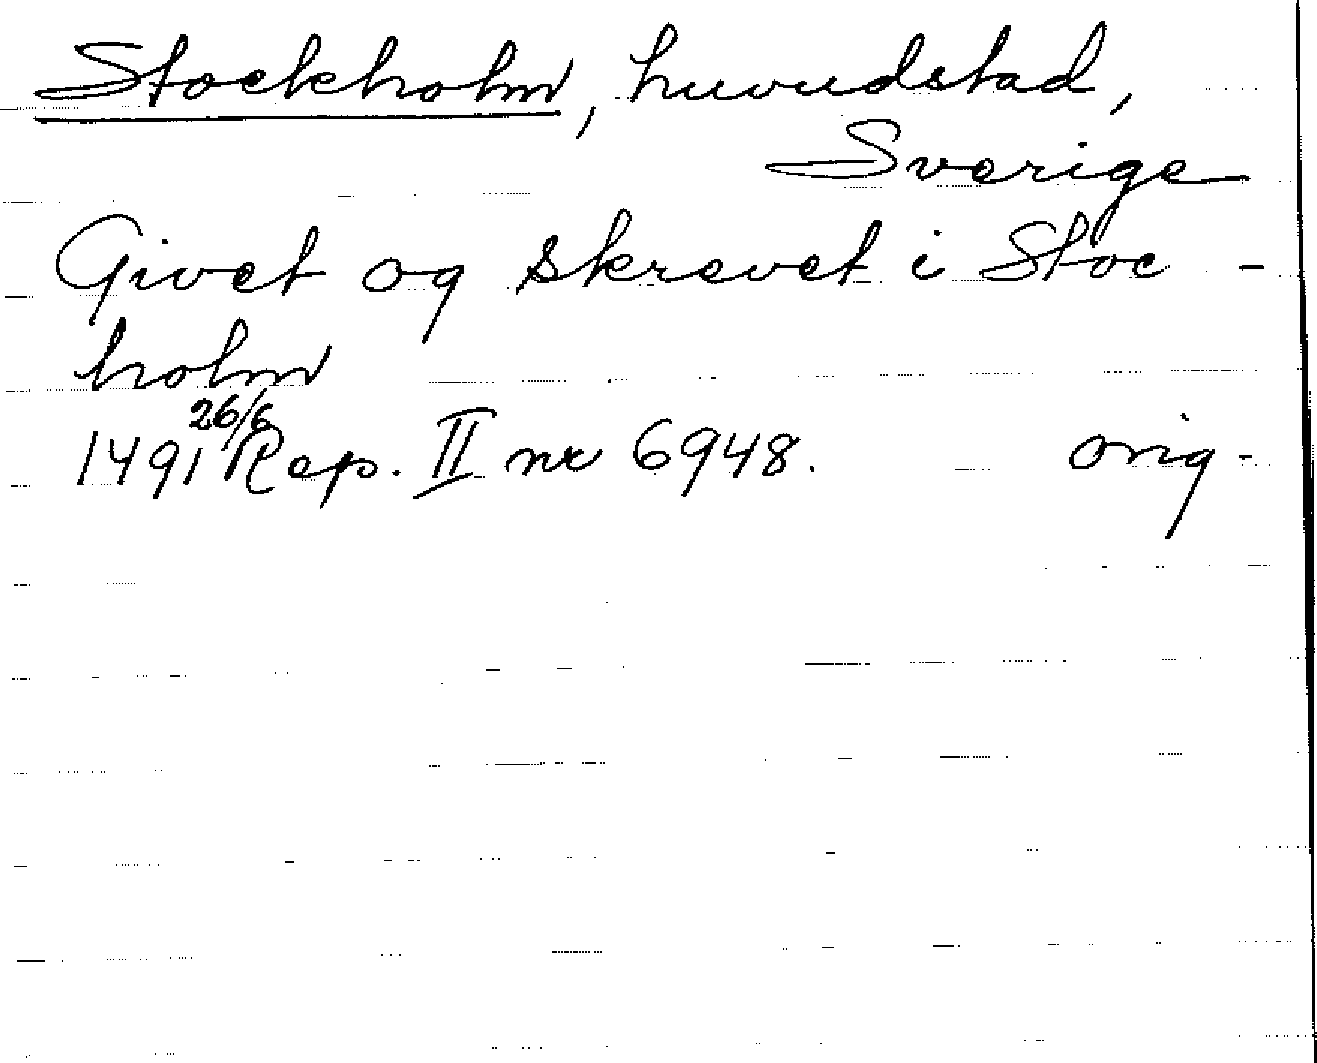 Stockholm, huvudstad,
Sverige
Givet og skrevet i Stoc-
holm
26/6
1491 Rep. II nr 6948. orig.